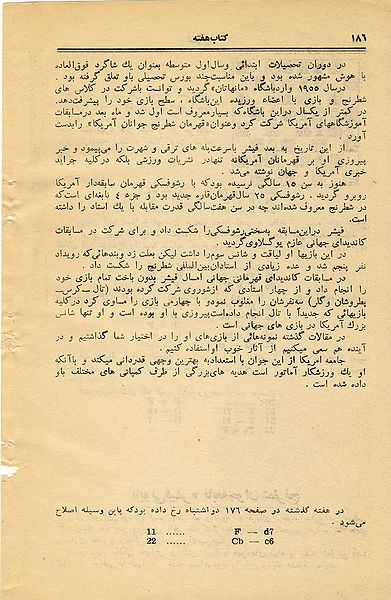 ۱۸۶ کتاب هفته
در دوران تحصیلات ابتدائی وسال‌اول متوسطه بعنوان یك شاگرد فوق‌العاده
با هوش مشهور شده بود و باین مناسبت‌چند بورس تحصیلی باو تعلق گرفته بود .
درسال ۱۹۵۵ وارد‌باشگاه «مانهاتان» گردید و توانست باشرکت در کلاس های
شطرنج و بازی با اعضاء ورزیده این‌باشگاه ، سطح بازی خود را پیشرفت‌دهد.
در کمتر از یکسال دراین باشگاه‌که بسیار‌معروف است اول شد و ماه بعد در‌مسابقات
آموزشگاههای آمریکا شرکت کرد وعنوان «قهرمان شطرنج جوانان آمریکا» را‌بدست
آورد .
از این تاریخ به بعد فیشر باسرعت‌پله های ترقی و شهرت را می‌پیمود و خبر
پیروزی او بر قهرمانان آمریکا‌نه تنها‌در نشریات ورزشی بلکه در‌کلیه جراید
خبری آمریکا و جهان نوشته می‌شد .
هنوز به سن ۱۵ سالگی نرسیده بود‌که با رشوفسکی قهرمان سابقه‌دار آمریکا
روبرو گردید . رشوفسکی ۲۵ سال‌قهرمان‌قاره جدید بود و جزء ٤ نابغه‌ای است‌که
در شطرنج معروف شده‌اند چه در سن هفت‌سالگی قدرت مقابله با یك استاد را داشته
است.
فیشر دراین‌مسابقه به‌سختی‌رشوفسکی‌را شکست داد و برای شرکت در مسابقات
کاندیدای جهانی عازم یو‌گسلاوی گردید .
در این بازیها او لیاقت و شانس سوم‌را داشت لیکن بعلت زد وبندهائی‌که رویداد
نفر پنجم شد و عده زیادی از استادان‌بین‌المللی شطرنج را شکست داد .
در مسابقات کاندیدای قهرمانی جهانی امسال فیشر بدون باخت تمام بازی خود
را انجام داد و از چهار استادی که ازشوروی شرکت کرده بودند (تال ــ کرس ــ
پطروشان و‌گلر) سه‌نفرشان را مغلوب نمود‌و با چهارمی بازی را مساوی کرد در‌کلیه
بازیهائی که جدیداً با تال انجام داده‌است‌پیروزی با او بوده است و او تنها شانس
بزرك آمریکا در بازی های جهانی است .
در مقالات گذشته نمونه‌هائی از بازی‌های او را در اختیار شما گذاشتیم و در
آینده هم سعی میکنیم از آثار خوب او‌استفاده کنیم .
جامعه امریکا از این جوان با استعداد‌به بهترین وجهی قدردانی میکند و با‌آنکه
او یك ورزشکار آماتور است هدیه های‌بزرگی از طرف کمپانی های مختلف باو
داده شده است .
در هفته گذشته در صفحه ۱۷۶ دو‌اشتباه رخ داده بود‌که باین وسیله اصلاح
می‌شود .
11 ...... F — d7
22 ...... Cb — c6